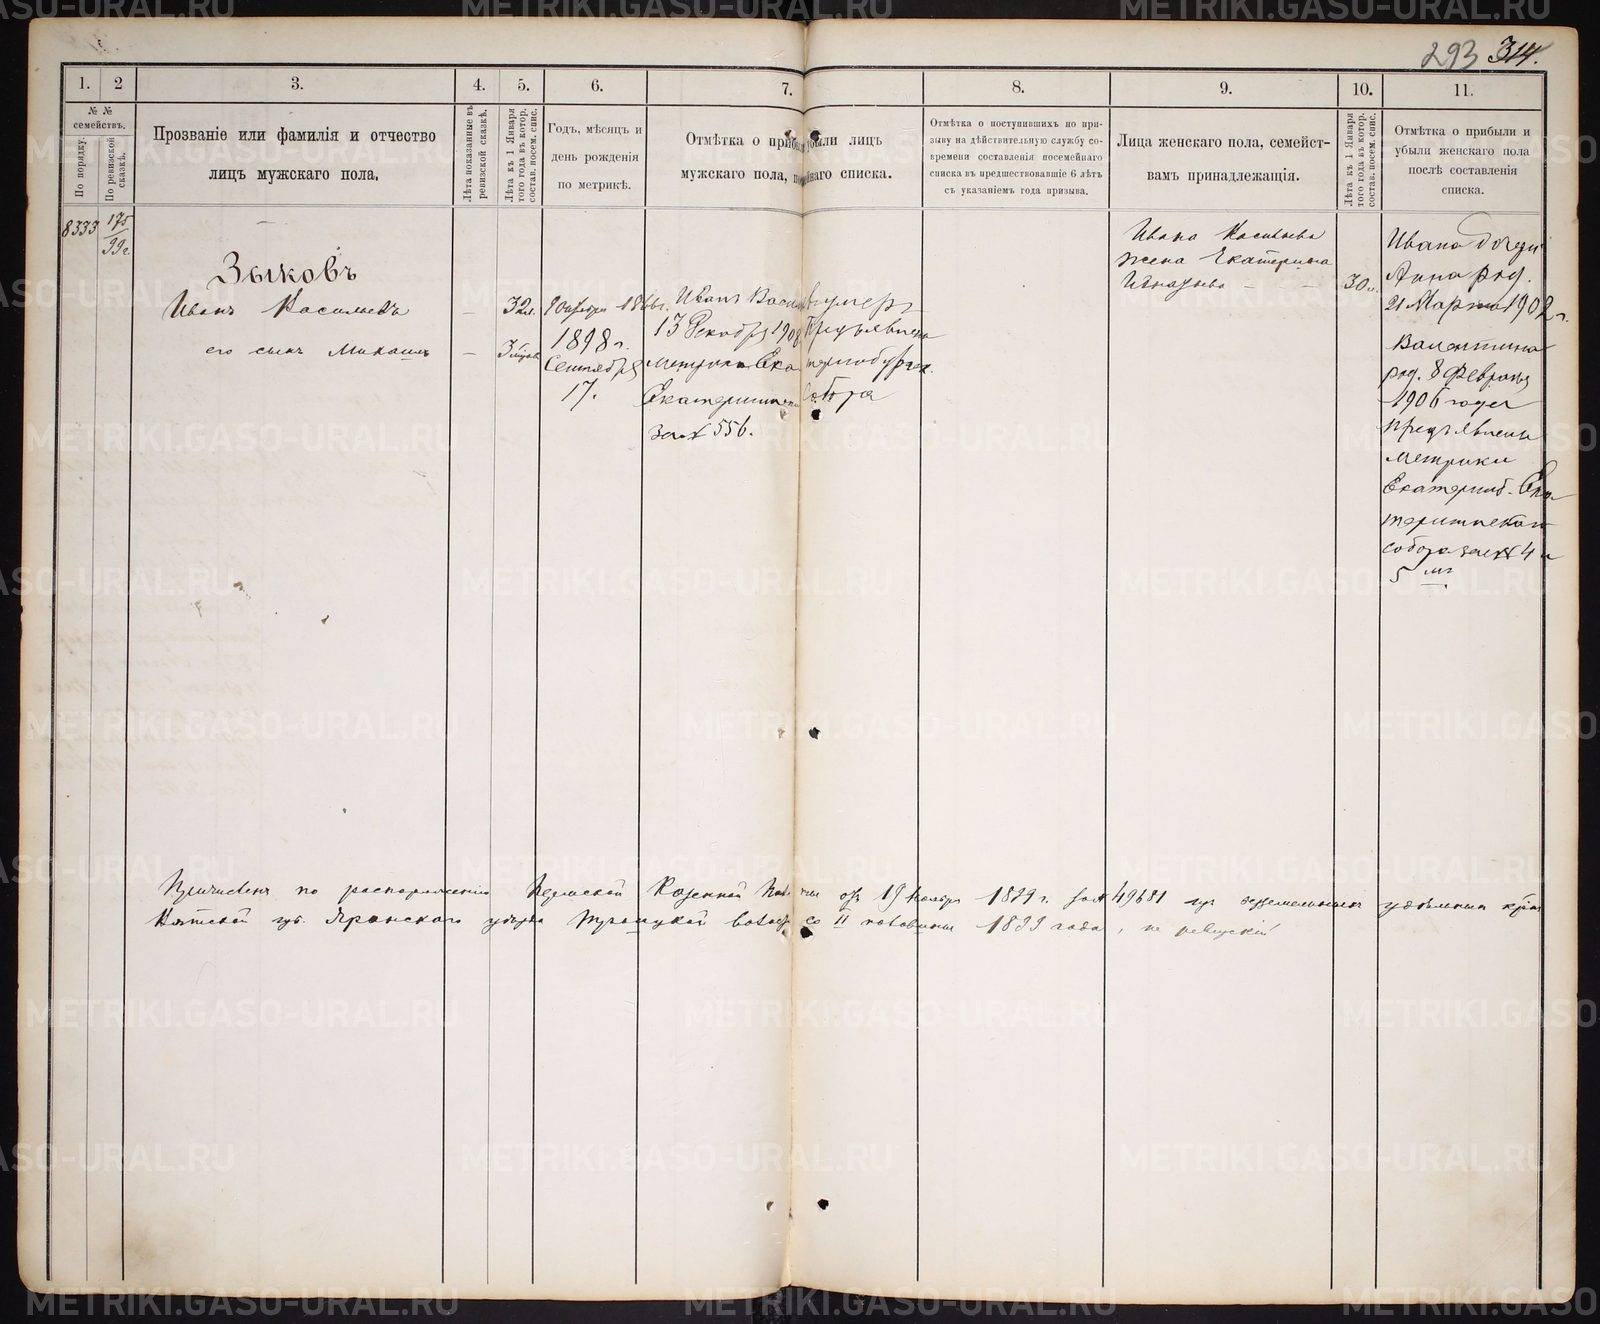 293 314.
1. 2 3. 4. 5. 6. 7. 8. 9. 10. 11.
№ №
семействъ.
По порядку.
По ревизской сказкѣ.
Прозваніе или фамилія и отчество
лицъ мужскаго пола.
Лѣта показанные въ
ревизской сказкѣ.
Лѣта къ 1 Января
того года въ котор.
состав. посем. спис.
Годъ, мѣсяцъ и
день рожденія
по метрикѣ.
Отмѣтка о прибыли лицъ
мужскаго пола, списка.
Отмѣтка о поступившихъ по при-
зыву на дѣйствительную службу со-
времени составленія посемейнаго
списка въ предшествовавшіе 6 лѣтъ
съ указаніемъ года призыва.
Лица женскаго пола, семейст-
вамъ принадлежащія.
Лѣта къ 1 Января
того года въ котор.
состав. посем. спис.
Отмѣтка о прибыли и
убыли женскаго пола
послѣ составленія
списка.
8333 175
99 г.
Зыковъ
Иванъ Васильевъ — 32 л.
его сынъ Михаилъ — 3
1898 г.
Сентября
17.
Иванъ умеръ
13 Декабря 190 Предъявлена
метрика Ека теринбургск.
Екатерининск Собора
за № 556.
Ивана Васильева
жена Екатерина
30 л.
Ивана дочери
Анна род.
21 Марта 1902 г.
Валентина
род. 8 Февраля
1906 года
предъявлены
метрики
Екатеринб. Ека
терининскаго
собора за № 4 и
5
Причисленъ по распоряженію Пермской Казенной Пала ты отъ 19 Ноября 1899 г. за № 49681 изъ
Вятской губ. Яранскаго уѣзда волости со II половины 1899 года,